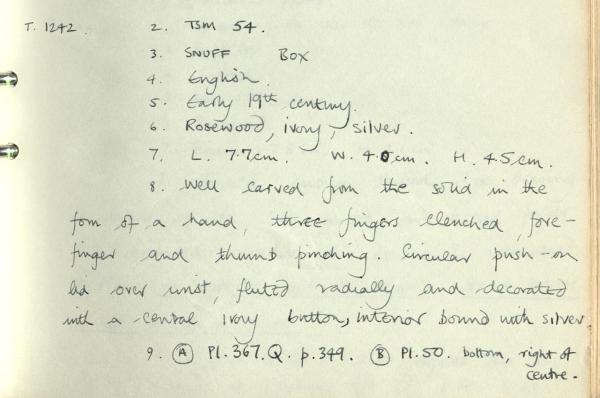 T. 1242. 2. TSM 54.
3. SNUFF BOX
4. English.
5. Early 19th century.
6. Rosewood, ivory, silver.
7. L. 7.7cm. W. 4.0cm. H. 4.5cm.
8. Well carved from the solid in the
form of a hand, three fingers clenched, fore-
finger and thumb pinching. Circular push-on
lid over wrist, fluted radially and decorated
with a central ivory button, interior bound with silver
9. (A) Pl. 367. Q. p. 349. (B) Pl. 50. bottom, right of
centre.